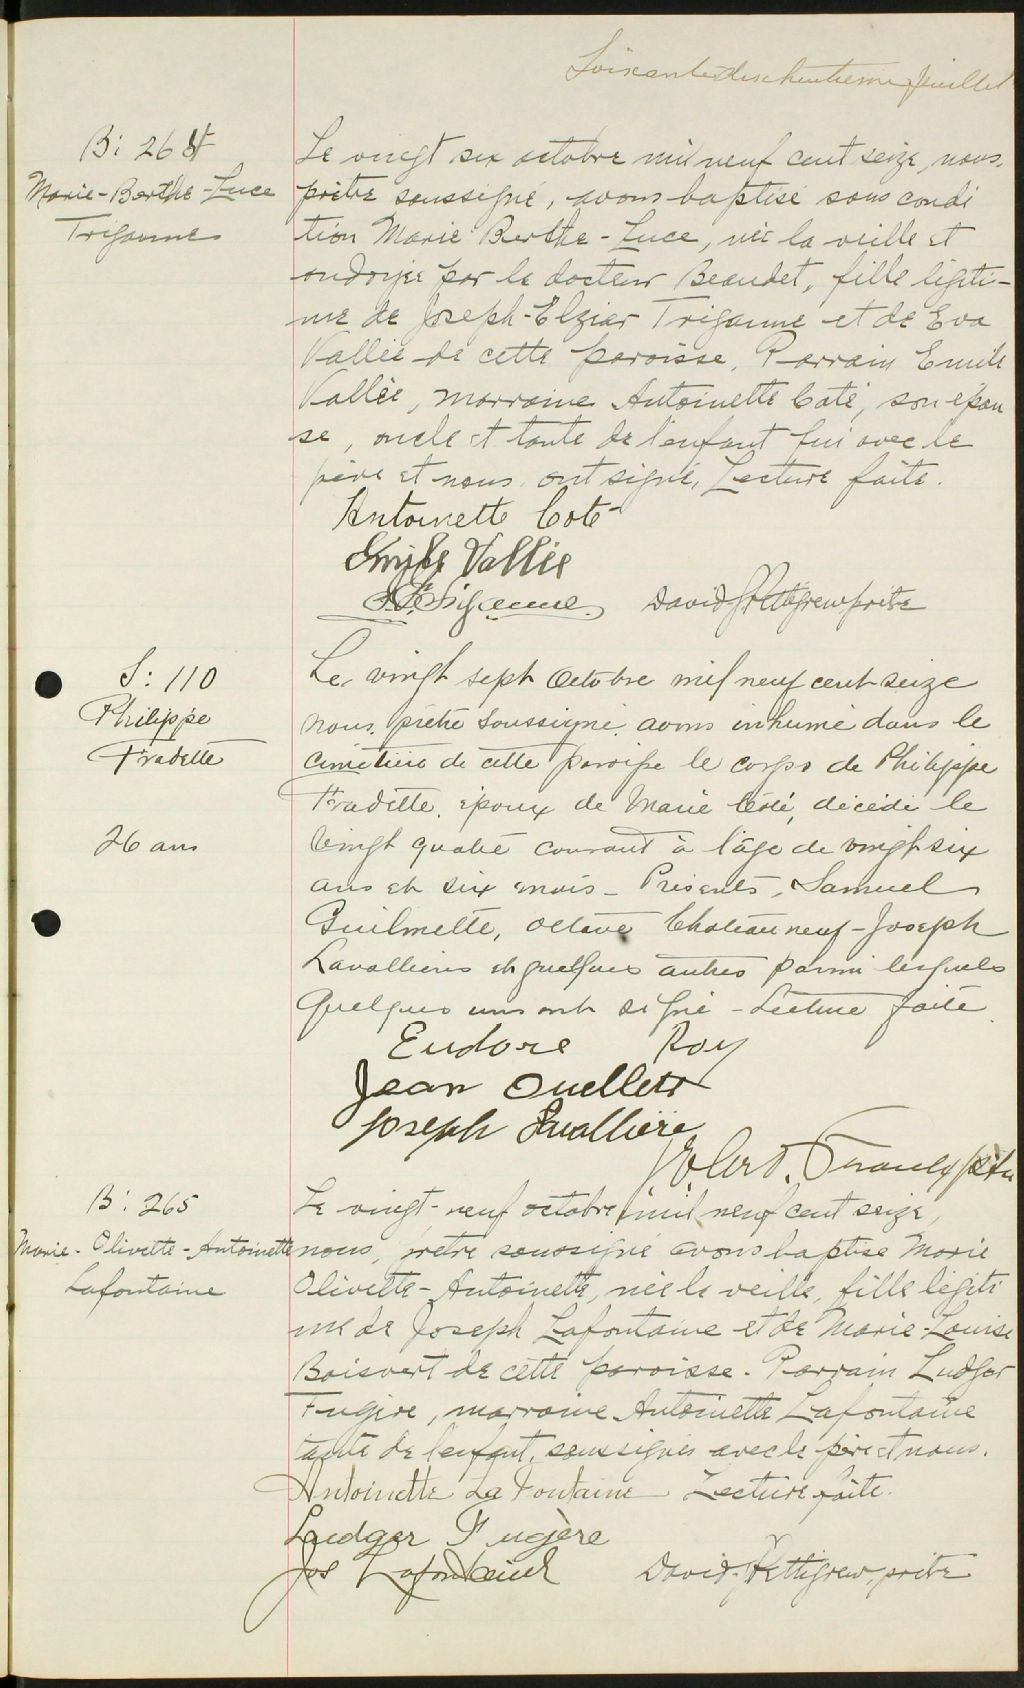 Soixante-dix-huitième feuillet
B: 264
Marie-Berthe-Luce
Triganne
Le vingt six octobre mil neuf cent seize, nous,
prêtre soussigné, avons baptisé sous condi
tion Marie Berthe-Luce, née la veille et
ondoyée par le docteur Beaudet, fille légiti-
me de Joseph-Elzéar Triganne et de Eva
Vallée de cette paroisse. Parrain Emile
Vallée, marraine Antoinette Coté, son épou
se, oncle et tante de l'enfant qui avec le
père et nous ont signé, Lecture faite.
Antoinette Coté
Emile Vallée
Triganne David Pettigrew ptrê
S: 110
Philippe
Fradette
26 ans
Le vingt sept Octobre mil neuf cent seize
nous, prêtre soussigné, avons inhumé dans le
cimetière de cette paroisse le corps de Philippe
Fradette, époux de Marie Côté, décédé le
vingt quatre courant à l'âge de vingt six
ans et six mois - Présents, Samuel
Guilmette, Octave Chateauneuf - Joseph
Lavallière et quelques autres parmi lesquels
quelques uns ont signé - Lecture faite.
Eudore Roy
Jean Ouellett
Joseph Lavallière
ptre
B: 265
Marie-Olivette-Antoinette
Lafontaine
Le vingt-neuf octobre mil neuf cent seize,
nous, prêtre soussigné avons baptisé Marie
Olivette-Antoinette, née la veille, fille légiti
me de Joseph Lafontaine et de Marie-Louise
Boisvert de cette paroisse. Parrain Ludger
Fugère, marraine Antoinette Lafontaine
tante de l'enfant, soussignés avec le père et nous.
Antoinette LaFontaine Lecture faite.
Ludger Fugère
Jos Lafontaine David Pettigrew, prêtre